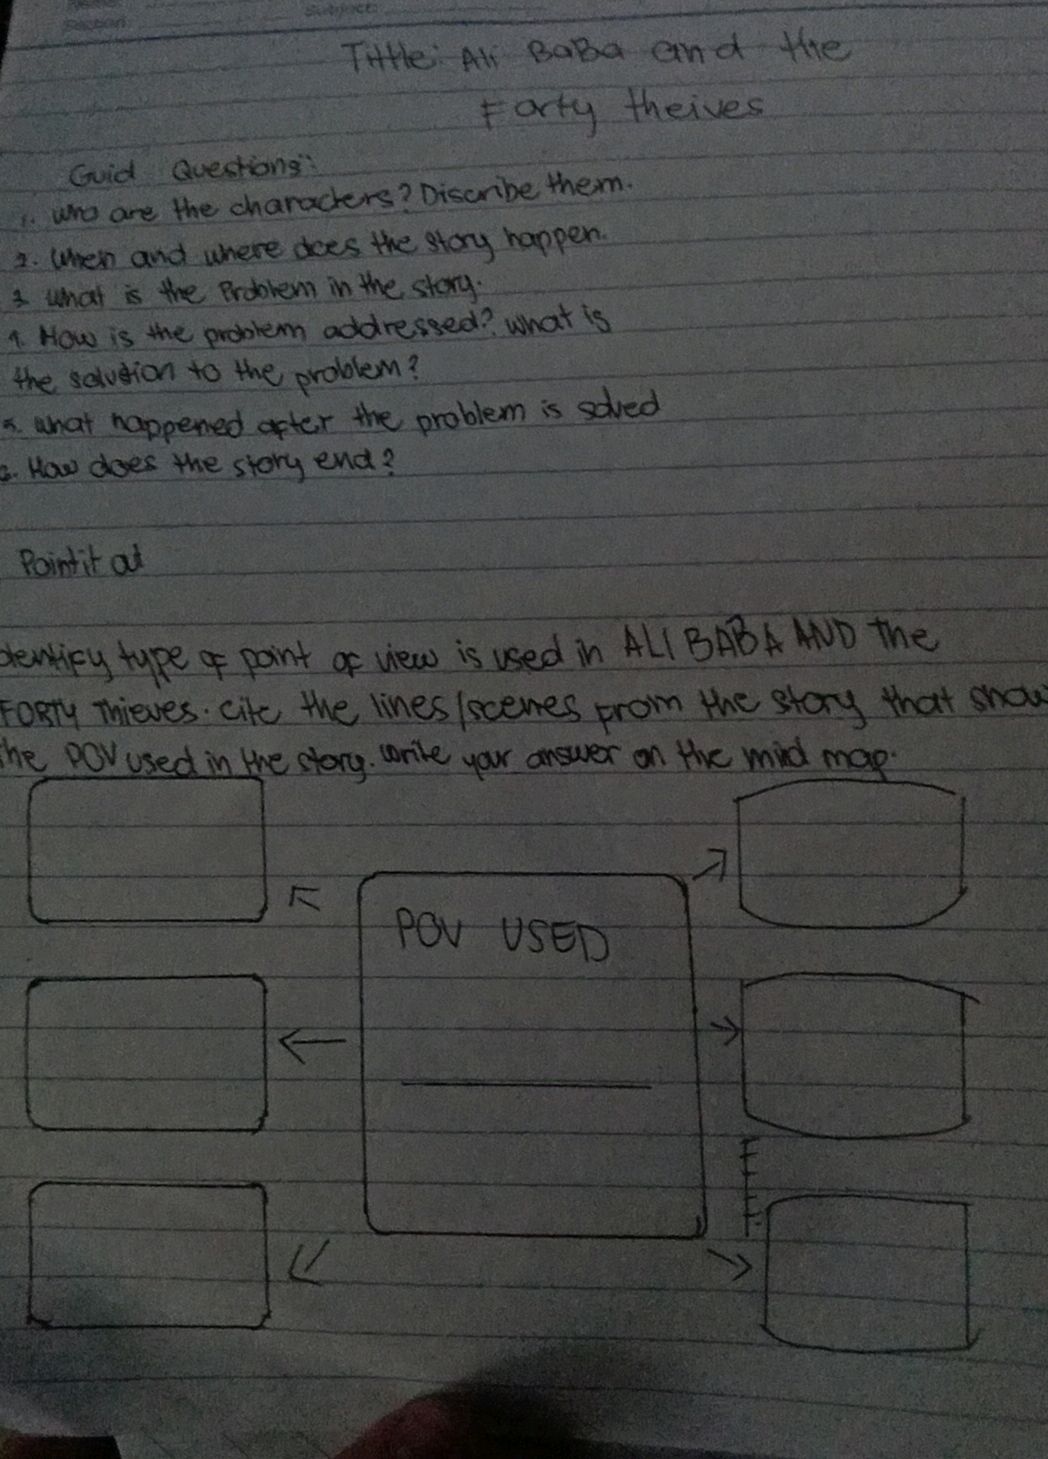 Section: Subject:
Tittle: Ali BaBa and the
Forty theives
Guid Questions:
1. Who are the characters? Discribe them.
2. When and where does the story happen.
3 What is the Problem in the story.
4. How is the problem addressed? What is
the solution to the problem?
5. What happened after the problem is solved
6. How does the story end?
Point it out
Identify type of point of view is used in ALI BABA AND The
FORTY Thieves. Cite the lines/scenes from the story that show
the POV used in the story. Write your answer on the mind map.
POV USED